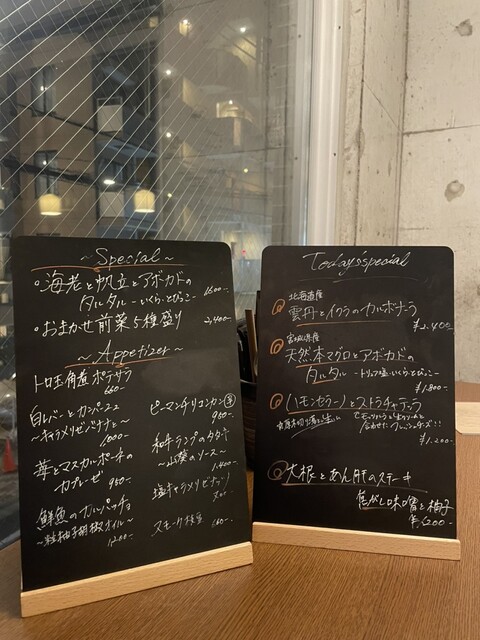 ~Special~
・海老と帆立とアボカドの
タルタル -いくら・とびっこ-
1600-
・おまかせ前菜5種盛り
2,400-
~Appetizer~
トロ玉角煮ポテサラ
660-
白レバーとカンパーニュ
~キャラメリゼバナナと~
1000-
苺とマスカルポーネの
カプレーゼ 960-
鮮魚のカルパッチョ
~柚子胡椒オイル~
1200-
ピーマンチリコンカン
960-
和牛ランプのタタキ
~山葵のソース~
1,400-
塩キャラメリゼナッツ
スモーク枝豆
Today's special
北海道産
雲丹とイクラのカルボナーラ
¥2,400-
宮城県産
天然本マグロとアボカドの
タルタル -トリュフ塩・いくら・とびっこ-
¥1,800-
ハモンセラーノとストラチャテッラ
¥1,200-
大根とあん肝のステーキ
焦がし味噌と柚子
¥1200-